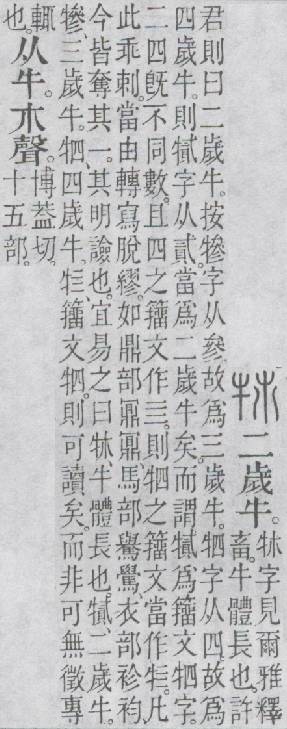 二歲牛。
㸬字見爾雅釋
畜。牛體長也。許
君則曰二歲牛。按犙字从參。故爲三歲牛。牭字从四。故爲
四歲牛。則㹑字从貳。當爲二歲牛矣。而謂㹑爲籒文牭字。
二四旣不同數。且四之籒文作亖。則牭之籒文當作𤘫。凡
此乖剌。當由轉寫脫繆。如鼎部鼏鼏馬部衣部袗袀
今皆奪其一。其明譣也。宜易之曰㸬、牛體長也。㹑、二歲牛。
犙、三歲牛。牭、四歲牛。𤘫、籒文牭。則可讀矣。而非可無徵專
輒
也。
从牛。𣎵聲。
博蓋切。
十五部。